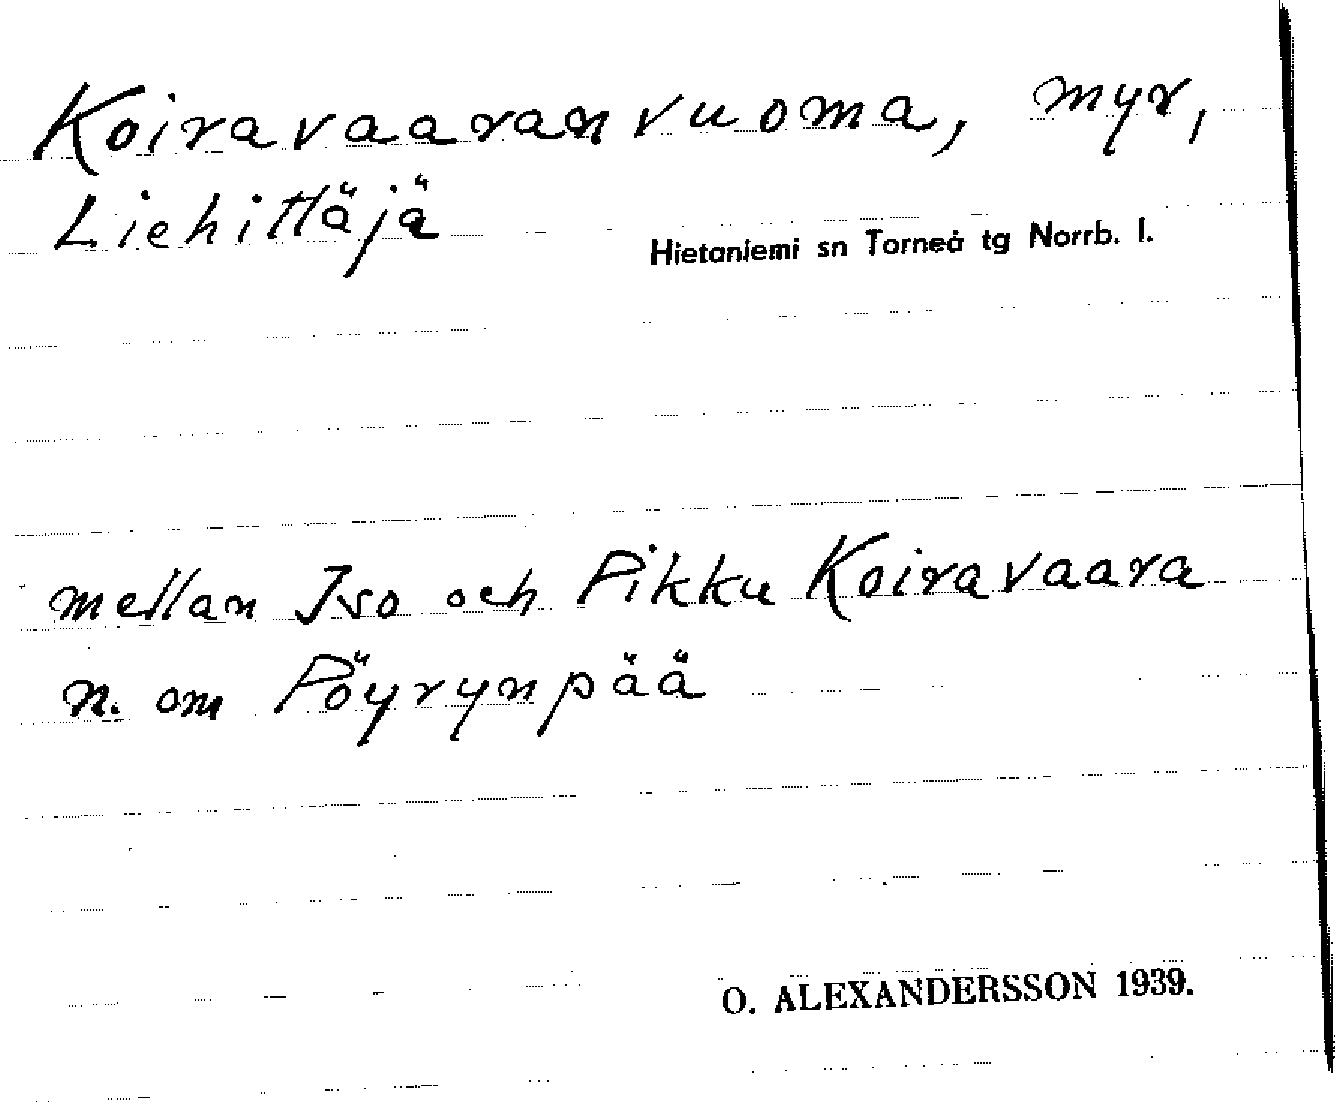 Koiravaaranvuoma, myr,
Liehittäjä
Hietaniemi sn Torneå tg Norrb. l.
mellan Iso och Pikku Koiravaara
n. om Pöyrynpää
O. ALEXANDERSSON 1939.